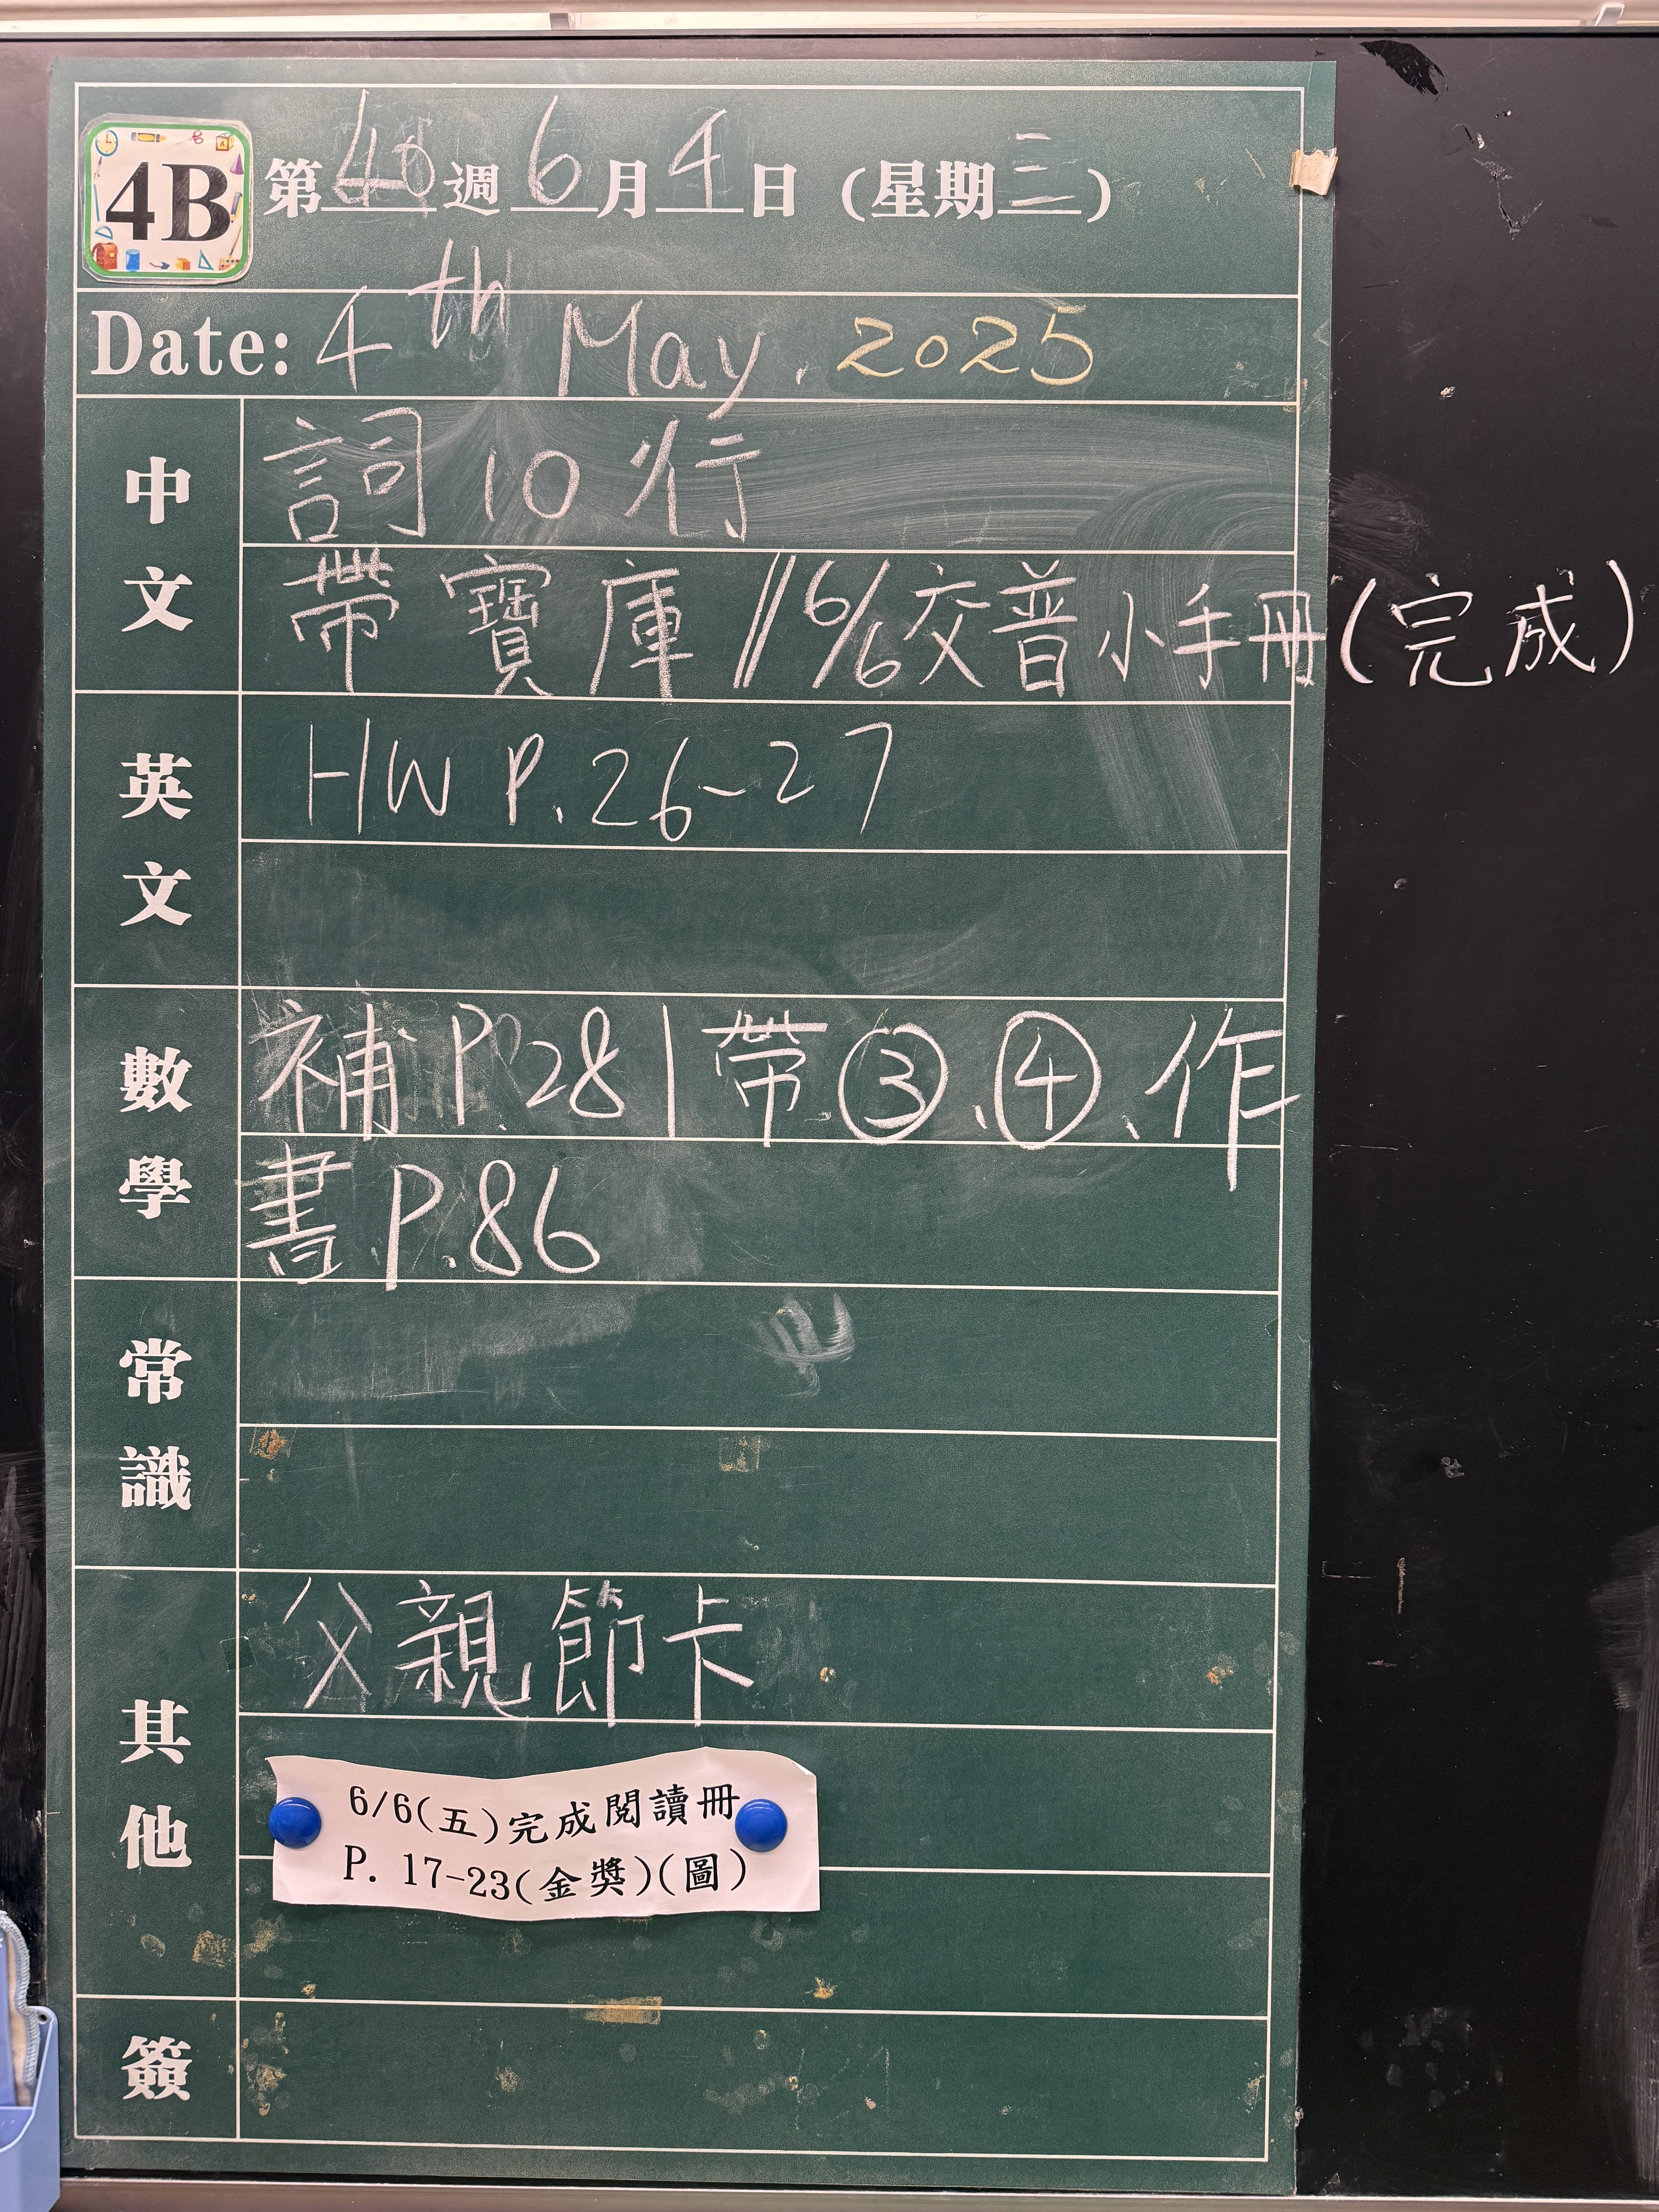 4B
第40週6月4日(星期三)
Date: 4th May. 2025
中文
詞10行
帶寶庫 // 6/6交普小手冊(完成)
英文
HW P.26~27
數學
補P.28 | 帶③、④、作
書P.86
常識
其他
父親節卡
6/6(五)完成閱讀冊
P. 17-23(金獎)(圖)
簽